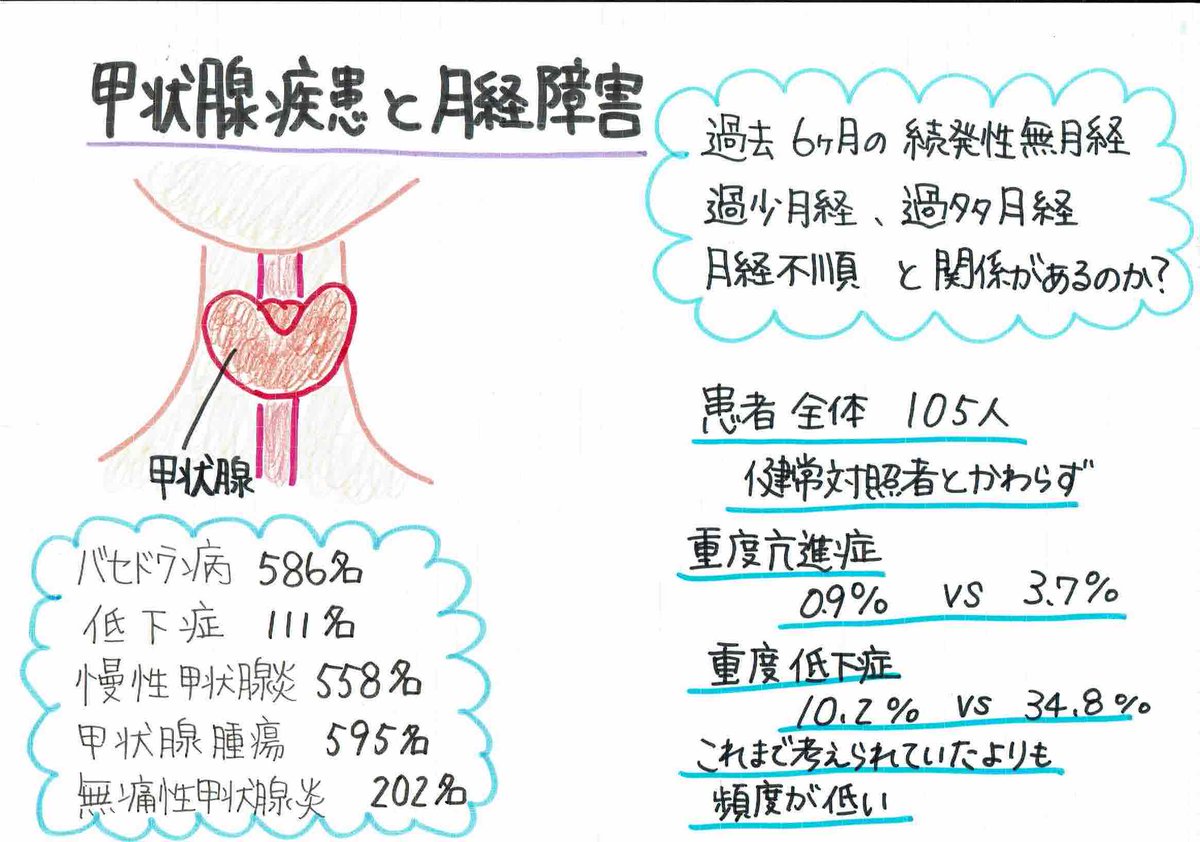 甲状腺疾患と月経障害
過去6ヶ月の続発性無月経
過少月経、過多月経
月経不順 と関係があるのか?
甲状腺
バセドウ病 586名
低下症 111名
慢性甲状腺炎 558名
甲状腺腫瘍 595名
無痛性甲状腺炎 202名
患者全体 105人
健常対照者とかわらず
重度亢進症
0.9% vs 3.7%
重度低下症
10.2% vs 34.8%
これまで考えられていたよりも
頻度が低い